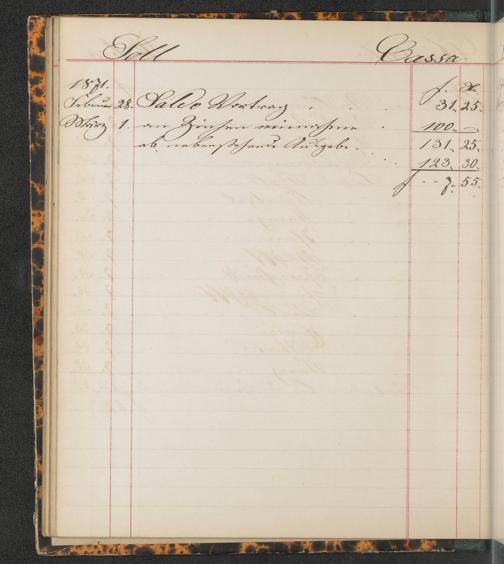 Soll Cassa
1871. f. x.
Februar 28. Saldo Vortrag . . 31. 25.
März 1. an Zinsen einnahme . 100. —
ab nebenstehende Ausgabe . 131. 25.
. . 123. 30.
f -- 7. 55.